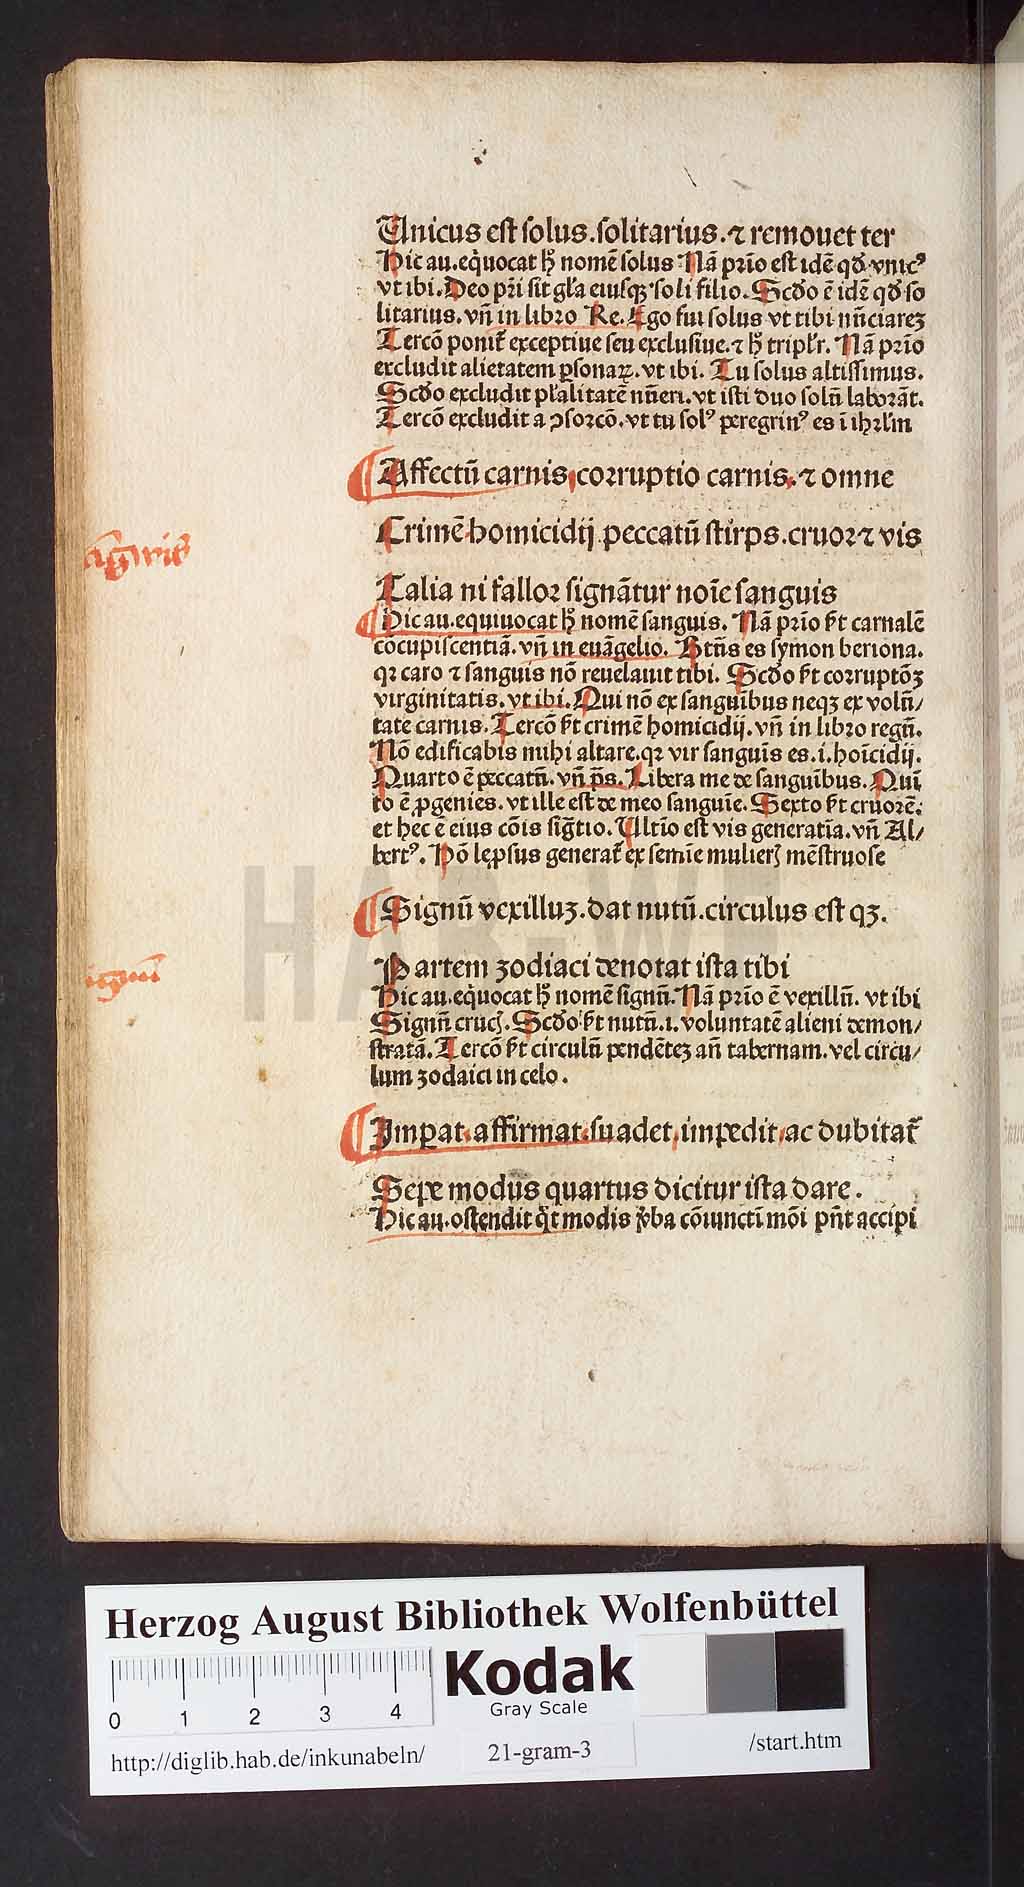 Unicus est solus.solitarius.⁊ remouet ter
Hic au.eq̇uocat hꝫ nomē solus Nā p̄rīo est idē qđ vnicꝰ
vt ibi.Deo pr̄i sit gl̄a eiusqꝫ soli filio.Scđo ē idē qđ so
litarius.vn̄ in libro Re.Ego fui solus vt tibi nn̄ciareꝫ
Tercō ponit᷑ exceptiue seu exclusiue.⁊ hꝫ tripl̄r. Nā prīo
excludit alietatem ꝑsonaꝝ.vt ibi. Tu solus altissimus.
Scđo excludit pl̄alitatē nn̄eri.vt isti duo soln̄ laborāt.
Tercō excludit a ↄsorcō.vt tu solꝰ peregrinꝰ es ī ihꝛl̄m
Affectū carnis,corruptio carnis.⁊ omne
Crimē homicidij peccatū stirps.cruor ⁊ vis
Talia ni fallor signātur noīe sanguis
Hic au.equiuocat hꝫ nomē sanguis. Nā prīo s̄t carnalē
cōcupiscentiā.vn̄ in euāgelio. Btn̄s es symon beriona.
qꝛ caro ⁊ sanguis nō reuelauit tibi. Scđo s̄t corruptōꝫ
virginitatis.vt ibi.Qui nō ex sanguībus neqꝫ ex voln̄/
tate carnis.Tercō s̄t crimē homicidij.vn̄ in libro regn̄.
Nō edificabis mihi altare.qꝛ vir sanguīs es.i.hoīcidij.
Quarto ē peccatn̄.vn̄ p̄s.Libera me de sanguībus.Quī
to ē ꝓgenies.vt ille est de meo sanguīe.Sexto s̄t cruorē:
et hec ē eius cōis sigt̄io.Vltīo est vis generatīa.vn̄ Al/
bertꝰ. Hō lepsus generat᷑ ex semīe mulierꝭ mēstruose
Signū vexilluꝫ.dat nutū.circulus est qꝫ.
Partem zodiaci denotat ista tibi
Hic au.eq̇uocat hꝫ nomē signn̄.Nā prīo ē vexilln̄. vt ibi
Signn̄ crucꝭ.Scđo s̄t nutn̄.i.voluntatē alieni demon/
stratā.Tercō s̄t circuln̄ pendēteꝫ an̄ tabernam.vel circu/
lum zodaici in celo.
Impat.affirmat.suadet,impedit,ac dubitat᷑
Sepe modus quartus dicitur ista dare.
Hic au.ostendit q̇t modis v̄ba cōiuncti mōi pn̄t accipi
HAB-WF
Herzog August Bibliothek Wolfenbüttel
0 1 2 3 4
Kodak
Gray Scale
http://diglib.hab.de/inkunabeln/ 21-gram-3 /start.htm